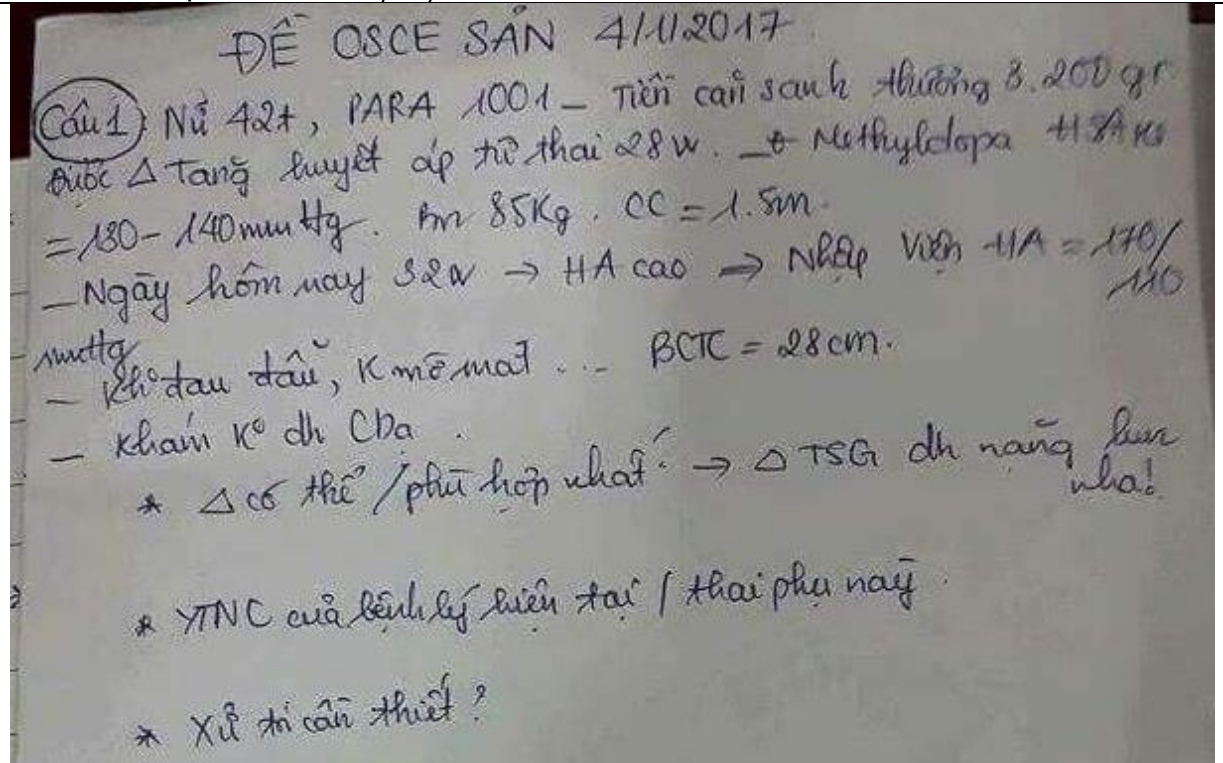 ĐỀ OSCE SẢN 4/1/2017.
Câu 1) Nữ 42t, PARA 1001 - Tiền căn sanh thường 3.200 gr
được Δ Tăng huyết áp từ thai 28 w. → Methyldopa HA
= 130 - 140 mmHg. 85Kg. CC = 1.5m.
- Ngày hôm nay 32w → HA cao → Nhập viện HA = 170/
110
mmHg
- Kh° đau đầu, K mờ mắt ... BCTC = 28cm.
- Khám K° dh CDa.
* Δ có thể / phù hợp nhất? → Δ TSG dh nặng
nha!
* YTNC của bệnh lý hiện tại / thai phụ này.
* Xử trí cần thiết?